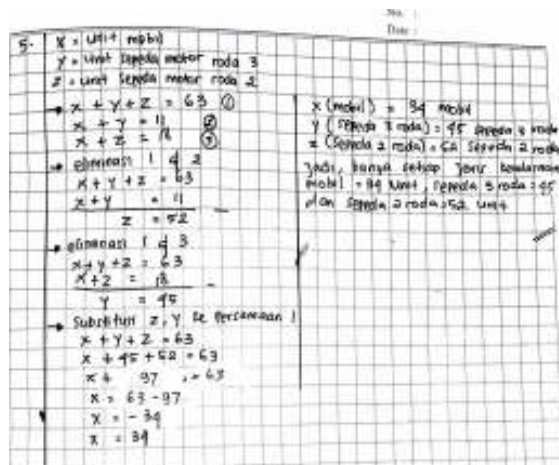 No. :
Date :
5. X = Unit mobil
Y = Unit sepeda motor roda 3
Z = Unit sepeda motor roda 2
→ x + y + z = 63 ①
x + y = 11 ②
x + z = 18 ③
→ eliminasi 1 & 2
x + y + z = 63
x + y = 11 -
z = 52
→ eliminasi 1 & 3
x + y + z = 63
x + z = 18 -
y = 45
→ Substitusi z, y ke persamaan 1
x + y + z = 63
x + 45 + 52 = 63
x + 97 = 63
x = 63 - 97
x = - 34
x = 34
x (mobil) = 34 mobil
y (sepeda 3 roda) = 45 sepeda 3 roda
z (sepeda 2 roda) = 52 sepeda 2 roda
Jadi, banyak setiap jenis kendaraan
mobil = 34 unit, sepeda 3 roda = 45
dan sepeda 2 roda = 52 unit